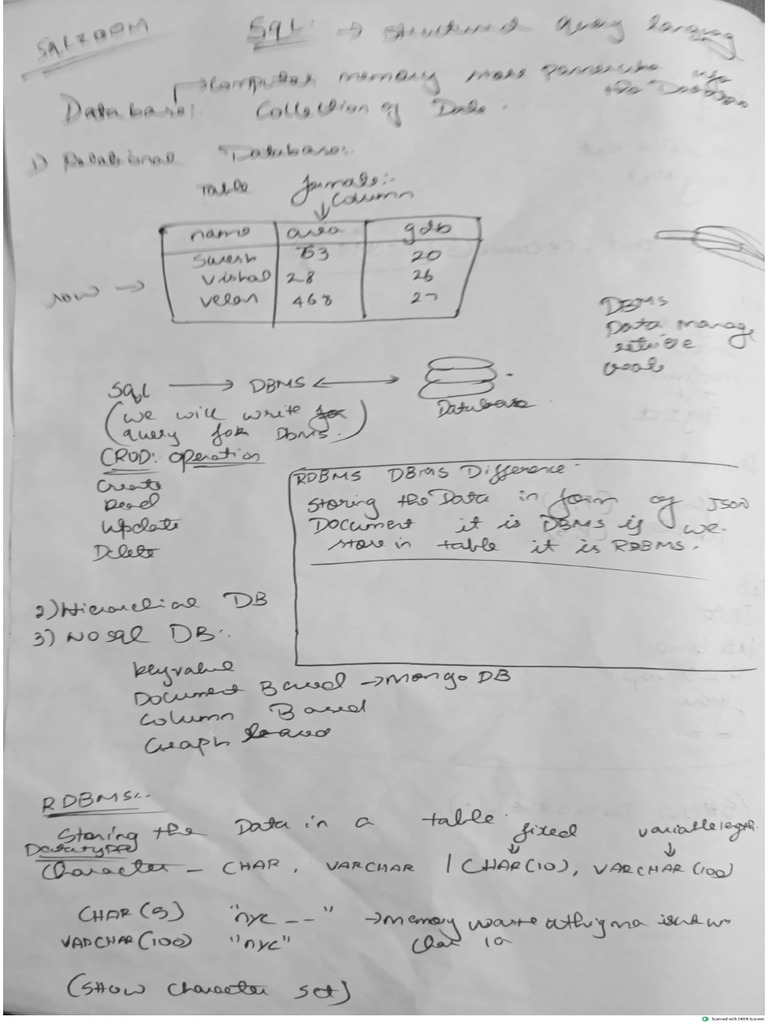 SQLZOOM
SQL: → Structured Query Languag
→ Computer memory
Database: Collection of Data.
1) Relational Database:-
Table formate:-
↓ Column
name area gdb
Suresh 53 20
Vishal 28 26
velan 468 27
row →
DBMS
Data manage
retrive
SQL → DBMS ↔ Database
(we will write for
query for DBMS.)
CROD: operation
Create
Read
Update
Delete
RDBMS DBMS Difference.
Storing the Data in form of JSON
Document it is DBMS is we
store in table it is RDBMS.
2) Hierarchial DB
3) NO SQL DB:.
key value
Document Based → Mongo DB
Column Based
Graph based
RDBMS:.
Storing the Data in a table.
Datatype
fixed variable length
↓ ↓
Character - CHAR, VARCHAR | CHAR(10), VARCHAR(100)
CHAR(5) "nyc _ _" → Memory waste
VARCHAR(100) "nyc"
(SHOW character set)
Scanned with OKEN Scanner